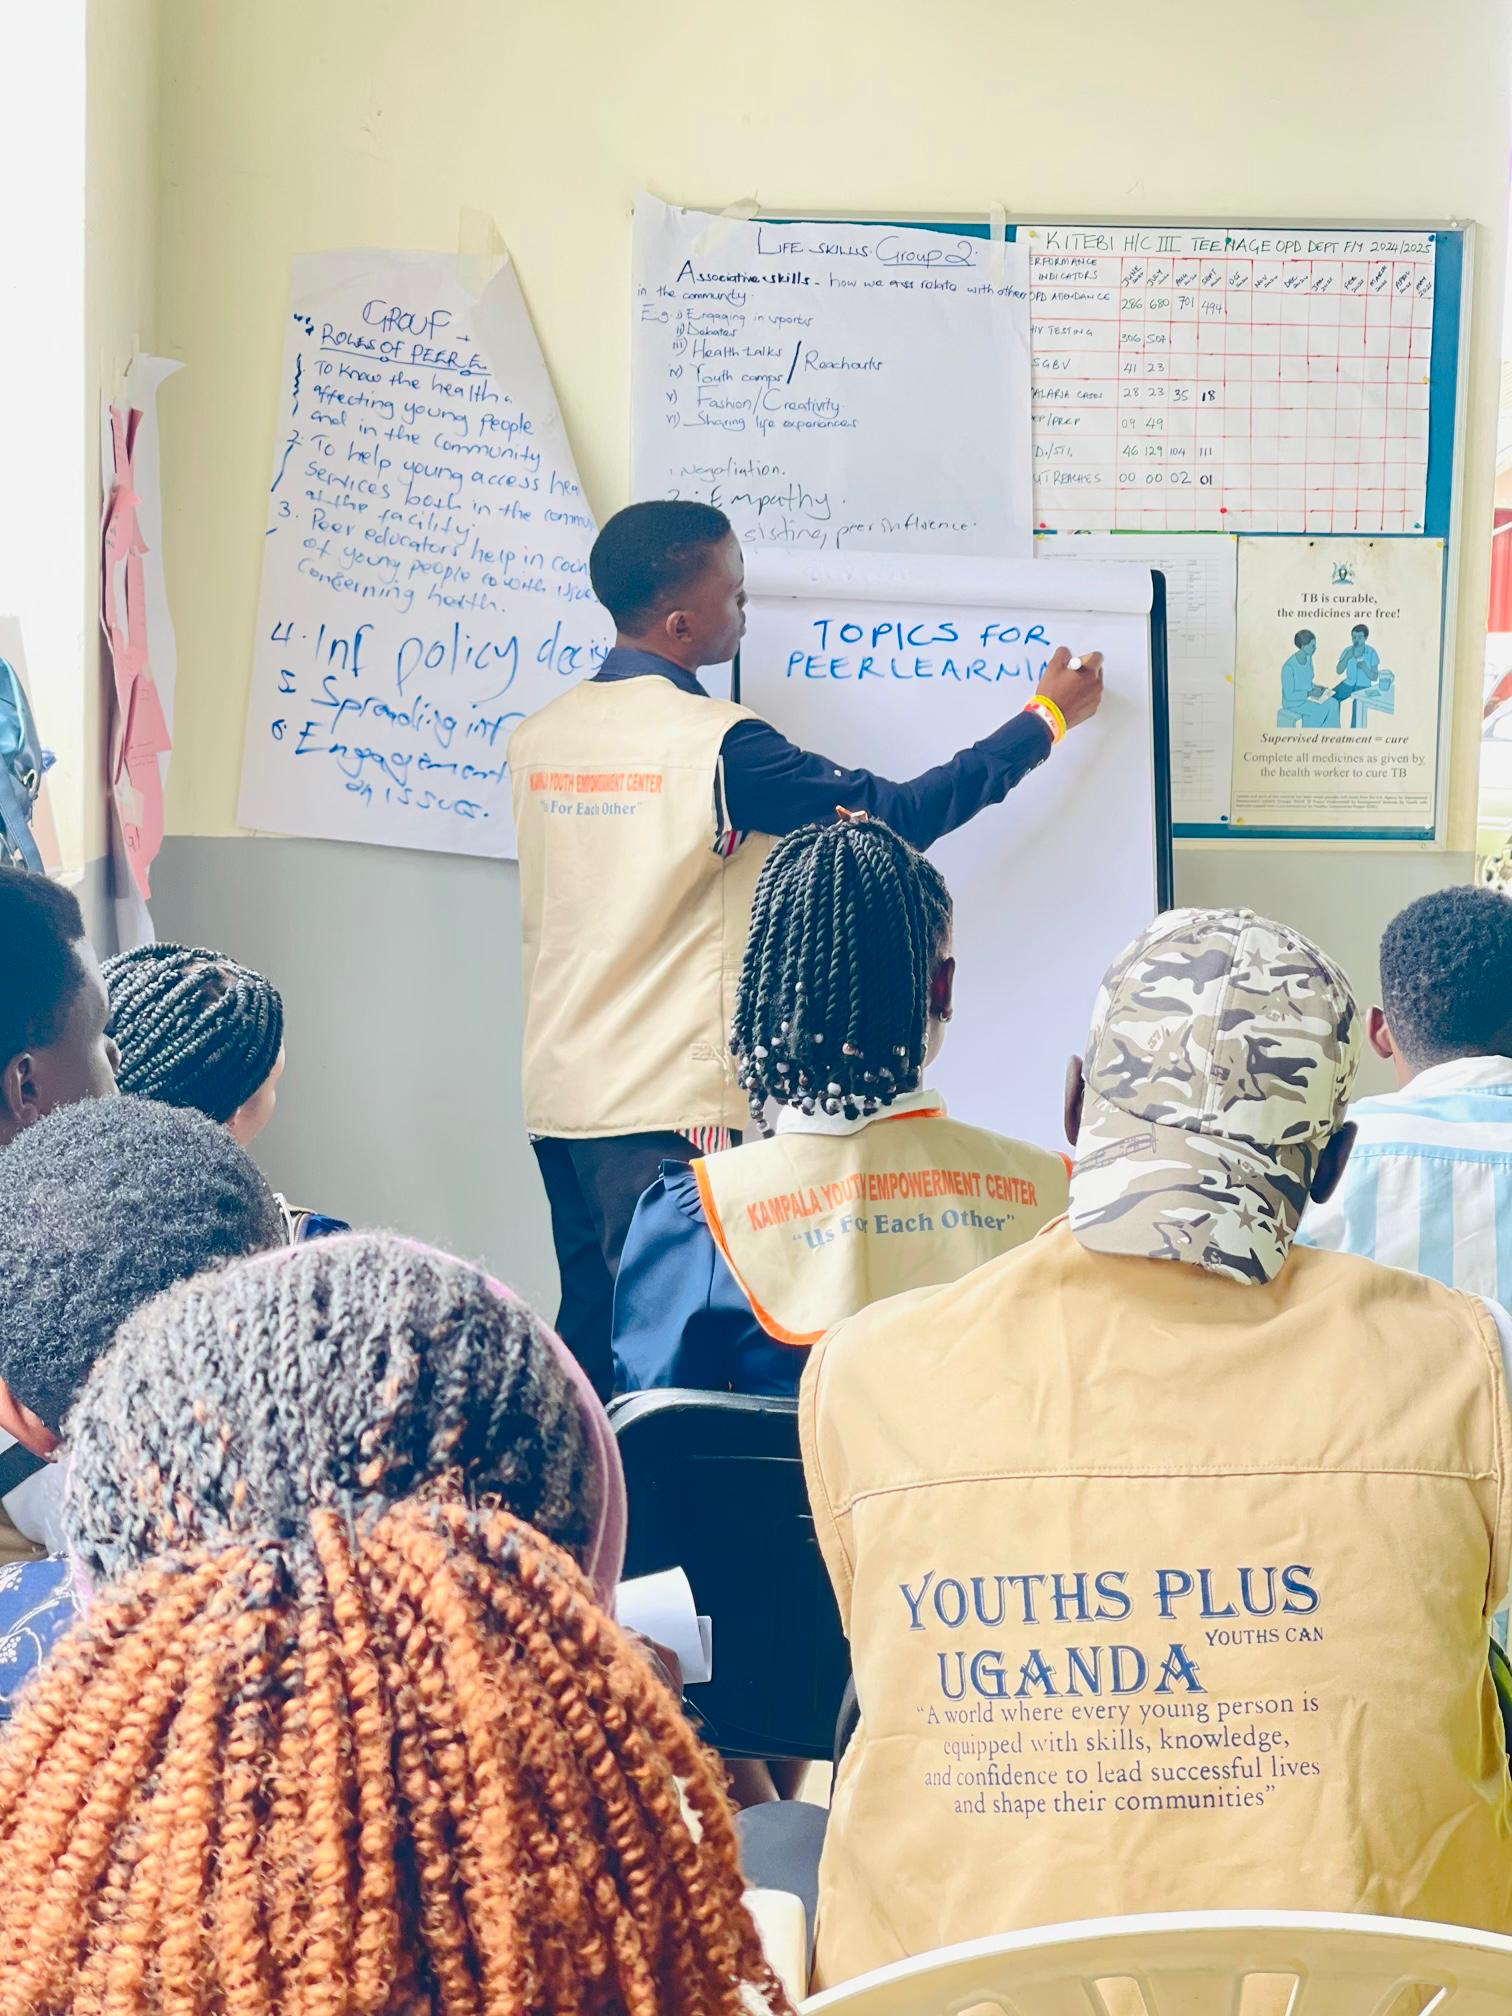 GROUP
ROLES OF PEER E
1. To know the health
affecting young people
and in the community
2. To help young access hea
services both in the commu
at the facility
3. Peer educators help in coun
of young people with issues
concerning health.
4. Inf policy decis
5. Spreading inf
6. Engagement
on issues.
LIFE SKILLS. Group 2.
Associative skills - how we relate with others
in the community.
E.g. i) Engaging in sports
ii) Debates
iii) Health talks / Reachouts
iv) Youth camps
v) Fashion/Creativity.
vi) Sharing life experiences
1 Negotiation.
2. Empathy.
sisting peer influence.
KITEBI H/C III TEENAGE OPD DEPT F/Y 2024/2025
ERFORMANCE
INDICATORS
JUNE JULY AUG SEPT OCT NOV DEC JAN FEB MARCH APRIL MAY
OPD ATENDANCE 286 680 701 494
HIV TESTING 306 507
SGBV 41 23
ALARIA CASES 28 23 35 18
EP/PREP 09 49
D./STI. 46 129 104 111
UTREACHES 00 00 02 01
TOPICS FOR
PEER LEARNIN
TB is curable,
the medicines are free!
Supervised treatment = cure
Complete all medicines as given by
the health worker to cure TB
KAMPALA YOUTH EMPOWERMENT CENTER
"Us For Each Other"
KAMPALA YOUTH EMPOWERMENT CENTER
"Us For Each Other"
YOUTHS PLUS
UGANDA YOUTHS CAN
"A world where every young person is
equipped with skills, knowledge,
and confidence to lead successful lives
and shape their communities"